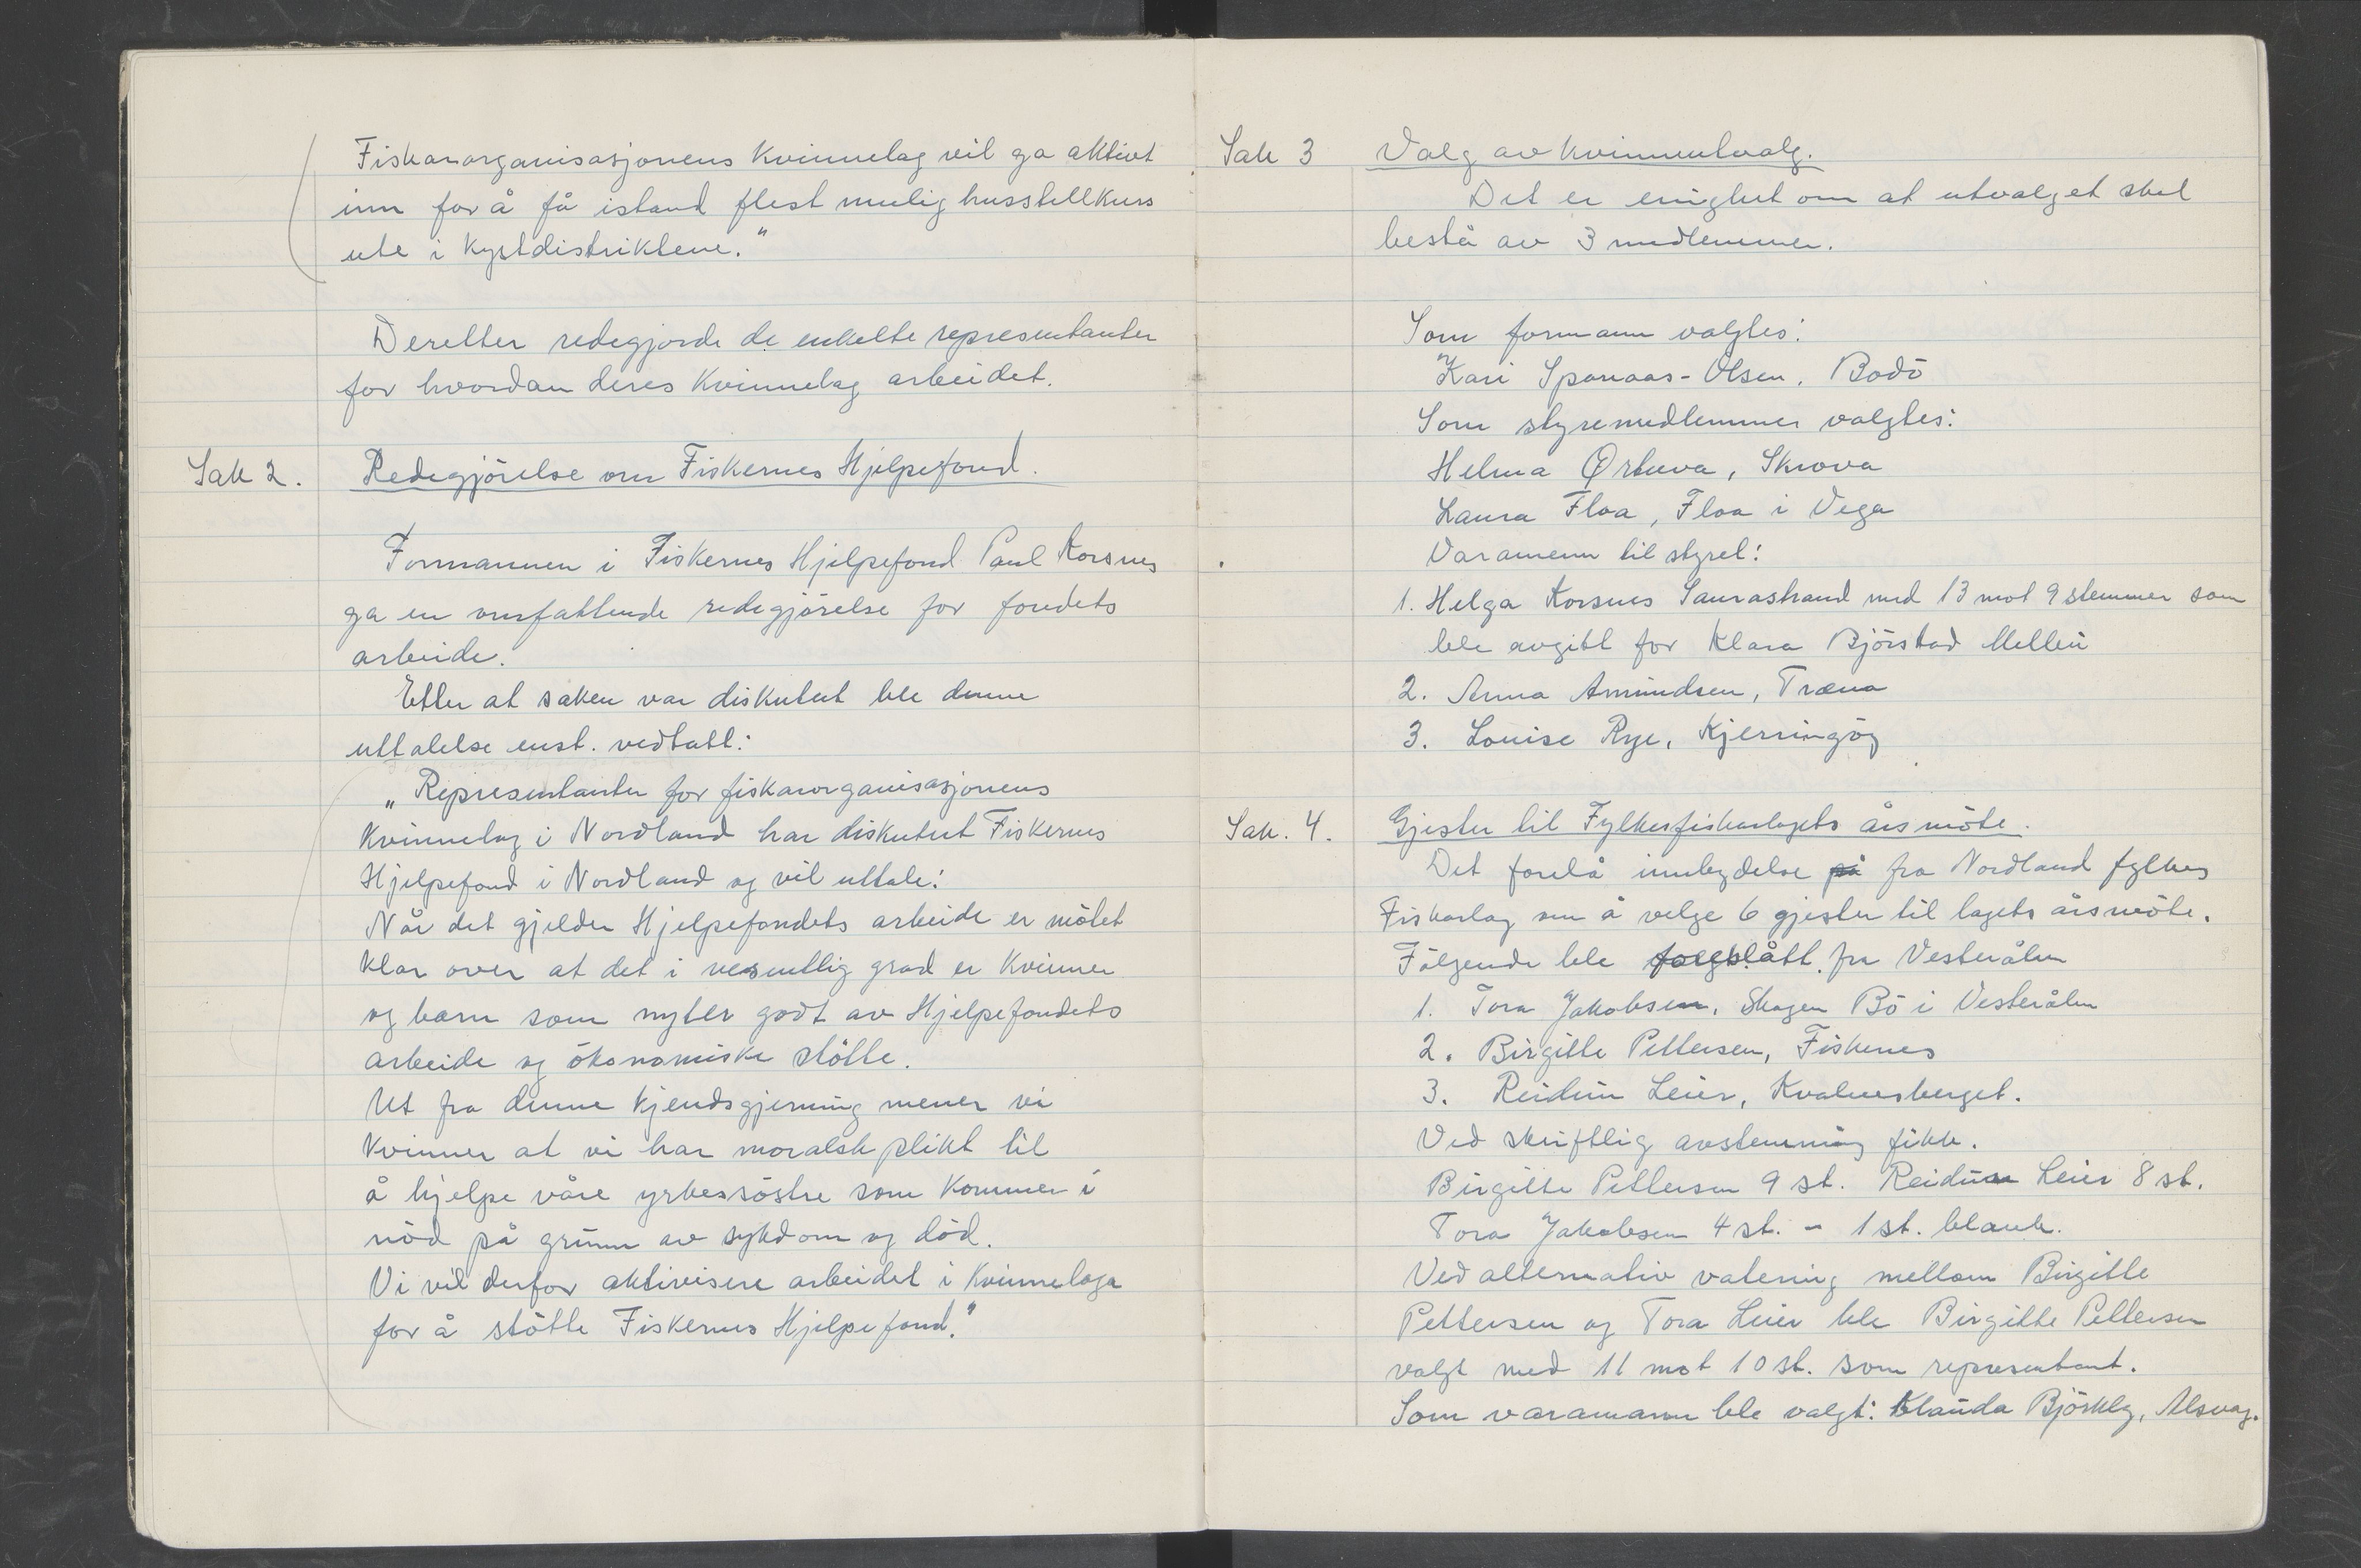 Fiskarorganisasjonens Kvinnelag vil ga aktivt
inn for å få istand flest mulig husstellkurs
ute i Kystdistriktene."
Deretter redegjorde de enkelte representanter
for hvordan deres Kvinnelag arbeidet.
Sak 2. Redegjörelse om Fiskernes Hjelpefond.
Formannen i Fiskernes Hjelpefond Paul Korsnes
ga en omfattende redegjörelse for fondets
arbeide.
Etter at saken var diskutert ble denne
uttalelse enst. vedtatt:
„Representanter for fiskarorganisasjonens
Kvinnelag i Nordland har diskutert Fiskernes
Hjelpefond i Nordland og vil uttale:
Når det gjelder Hjelpefondets arbeide er mötet
klar over at det i vesentlig grad er Kvinner
og barn som nyter godt av Hjelpefondets
arbeide og ökonomiske stötte.
Ut fra denne kjendsgjerning mener vi
Kvinner at vi har moralsk plikt til
å hjelpe våre yrkessöstre som Kommer i
nöd på grunn av sykdom og död.
Vi vil derfor aktivisere arbeidet i Kvinnelaga
for å stötte Fiskernes Hjelpefond."
Sak 3 Valg av kvinneutvalg.
Det er enighet om at utvalget skal
bestå av 3 medlemmer.
Som formann valgtes:
Kari Spanaas-Olsen. Bodö
Som styremedlemmer valgtes:
Helma Ørtuva, Skrova
Laura Floa, Floa i Vega
Varamenn til styret:
1. Helga Korsnes Saurastrand med 13 mot 9 stemmer som
ble avgitt for Klara Björstad Mellen
2. Anna Amundsen, Træna
3. Louise Rye, Kjerringöy
Sak. 4. Gjester til Fylkesfiskarlagets årsmöte.
Det forelå innbydelse på fra Nordland fylkes
Fiskarlag om å velge 6 gjester til lagets årsmöte.
Fölgende ble foreslått fra Vesterålen
1. Tora Jakobsen, Skagen Bö i Vesterålen
2. Birgitte Pettersen, Fiskenes
3. Reidun Leier, Kvalnesberget.
Ved skriftlig avstemming fikk.
Birgitte Pettersen 9 st. Reidun Leier 8 st.
Tora Jakobsen 4 st. - 1 st. blank.
Ved alternativ votering mellom Birgitte
Pettersen og Tora Leier ble Birgitte Pettersen
valgt med 11 mot 10 st. som representant.
Som varamann ble valgt: Klauda Björkly, Alsvåg.